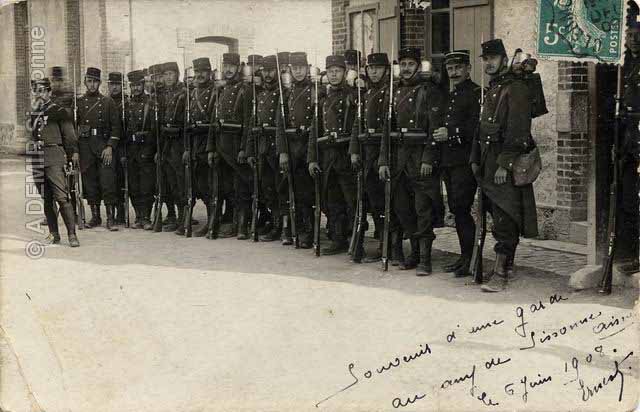 5c
POSTES
© ADEMIR-Sissonne
Souvenir d'une garde
au camp de Sissonne aisne
le 6 Juin 1908.
Ernest